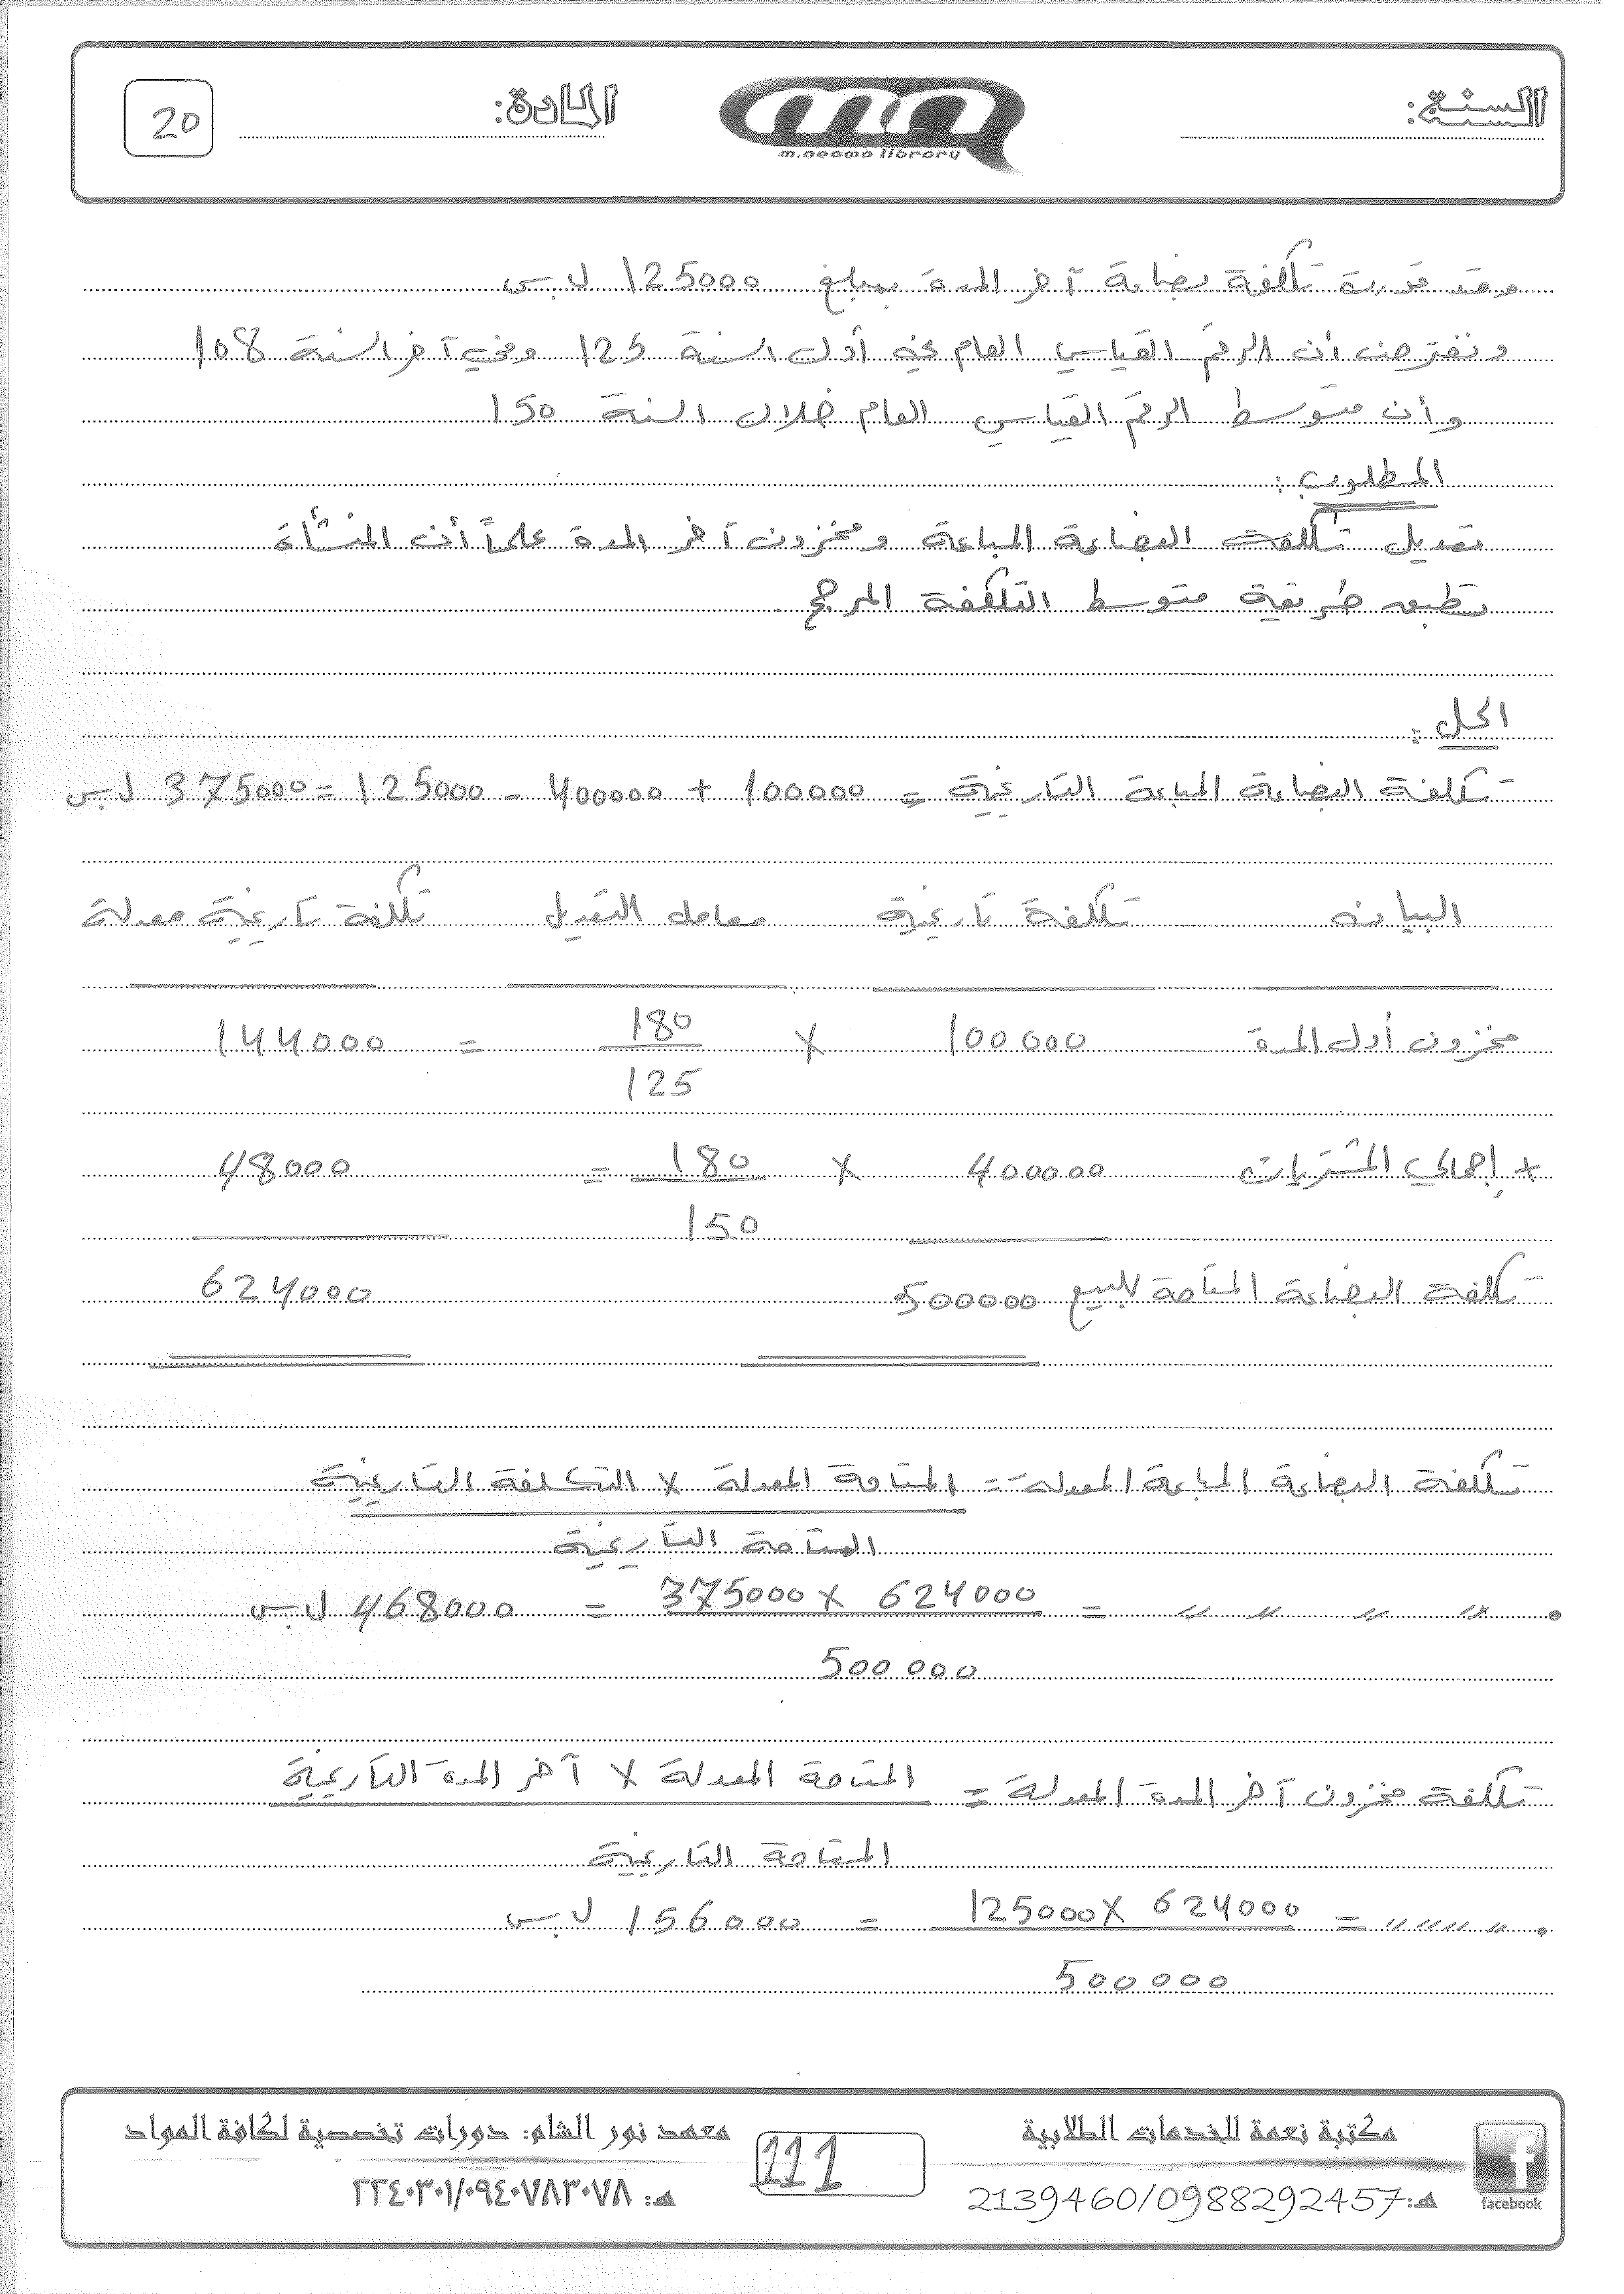 السنة:
m.neoma library
المادة:
20
وقد قدرت تكلفة بضاعة آخر المدة بمبلغ 125000 ل.س
ونفترض أن الرقم القياسي العام في أول السنة 125 وفي آخر السنة 108
وأن متوسط الرقم القياسي العام خلال السنة 150
المطلوب:
تعديل تكلفة البضاعة المباعة ومخزون آخر المدة علماً أن المنشأة
تطبق طريقة متوسط التكلفة المرجح.
الحل:
تكلفة البضاعة المباعة التاريخية = 100000 + 400000 - 125000 = 375000 ل.س
البيان تكلفة تاريخية معامل التعديل تكلفة تاريخية معدلة
مخزون أول المدة 100000 × 180 = 144000
125
+ إجمالي المشتريات 400000 × 180 = 48000
150
تكلفة البضاعة المتاحة للبيع 500000 624000
تكلفة البضاعة المباعة المعدلة = المتاحة المعدلة × التكلفة التاريخية
المتاحة التاريخية
• 〃 〃 〃 〃 = 624000 × 375000 = 468000 ل.س
500000
تكلفة مخزون آخر المدة المعدلة = المتاحة المعدلة × آخر المدة التاريخية
المتاحة التاريخية
• 〃 〃 〃 〃 = 624000 × 125000 = 156000 ل.س
500000
مكتبة نعمة للخدمات الطلابية
هـ: 2139460/0988292457
facebook
111
معهد نور الشام: دورات تخصصية لكافة المواد
هـ: ٢٢٤٠٣٠١/٠٩٤٠٧٨٣٠٧٨